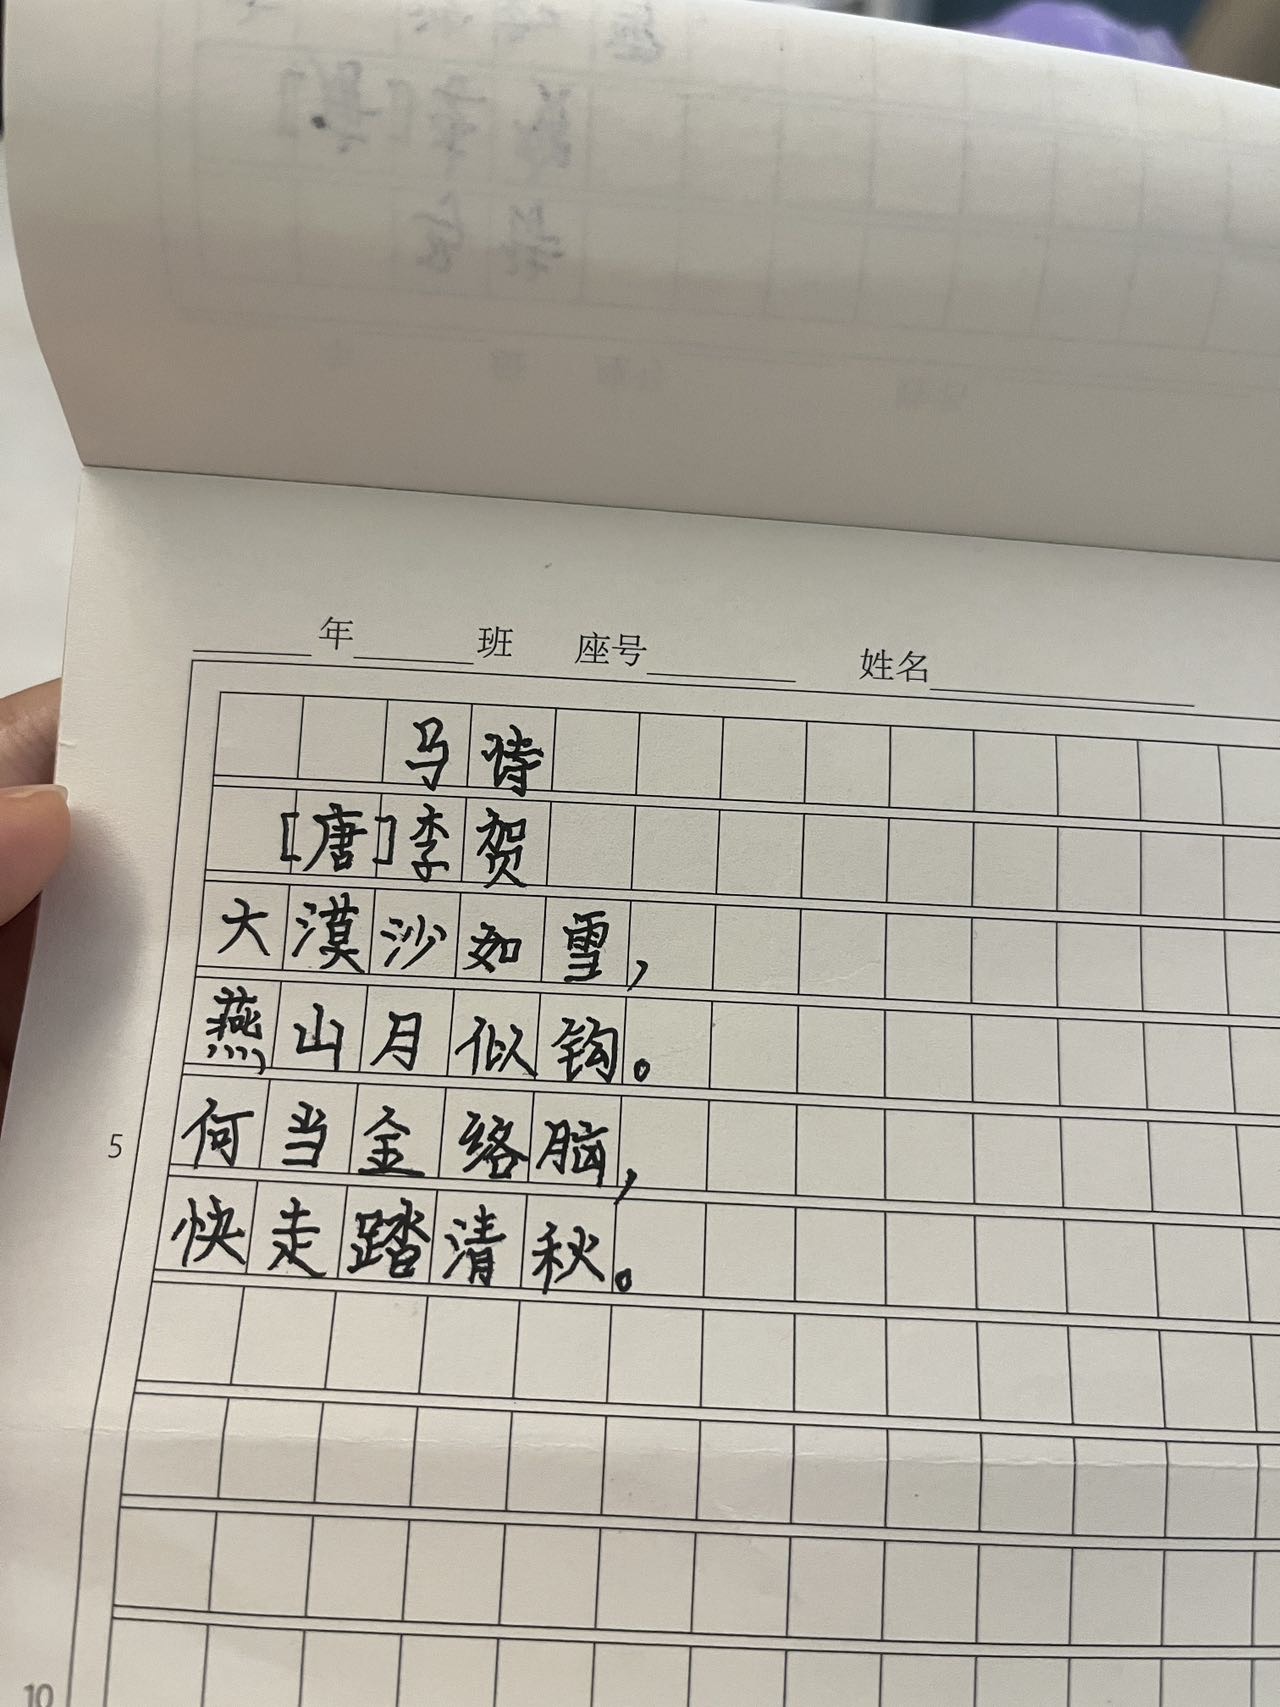 年 班 座号 姓名
马诗
[唐]李贺
大漠沙如雪，
燕山月似钩。
何当金络脑，
5
快走踏清秋。
10